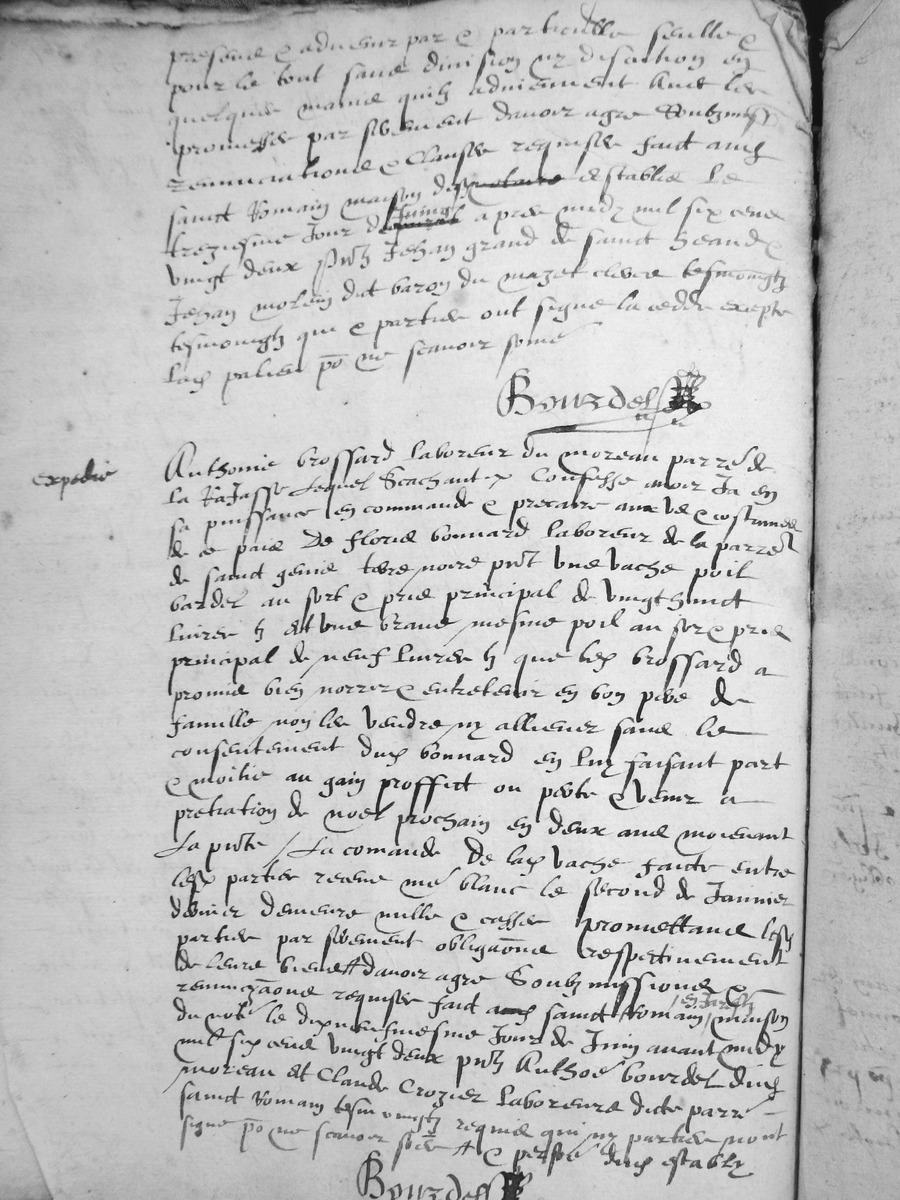 presens & advenir par & particulle seulle &
pour le tout sans division ny discution en
quelques mains quilz adviennent Avec les
promesses par serement davoir agre Soubzmiss
renunciations & Clauses requises faict aud
sainct Romain maison establie Le
treziesme Jour de Juing apres midy mil six cens
vingt deux pntz Jehan grand de sainct heand &
Jehan molein dict baron du mazet clercs tesmoingtz
tesmoingtz qui & parties ont signe la cedde excepte
lad palien po ne scavoir some
Bourdel
expedie
Anthonie brossard laboreur du moreau parre de
La Rajasse Lequel Scachant & Confesse avoir Ja en
sa puissance en commande & precaire aux us & costumes
de ce pais De floris bonnard laboreur de la parre
de sainct genis terre noire pnt une vache poil
bardel au sort & pris principal de vingthuict
livres h et une brave mesme poil au sort & pris
principal de neuf livres h que led brossard a
promis bien norrir & entretenir en bon pere de
famille non les vendre ny alliener sans le
consentement dud bonnard en luy faisant part
& moitie au gain proffict ou perte & venir a
pretiation de noel prochain en deux ans moienant
La pnte / La comande De lad vache faicte entre
lesd parties receue me blanc le second de Janvier
dernier demeure nulle & cassee promettans lesd
parties par serement obligaons respectivement
de leurs biens davoir agre Soubzmissions &
renunciaons requises faict sainct Romain en Jarestz maison
du nore le dixneufviesme Jour de Juin avant midy
mil six cens vingt deux pntz Anthoe bourdel dud
moreau et Claude Crozier laboreurs dicte parre
sainct Romain tesmoingtz requis qui ny parties nont
signe po ne scavoir & persoe dud estably
Bourdel